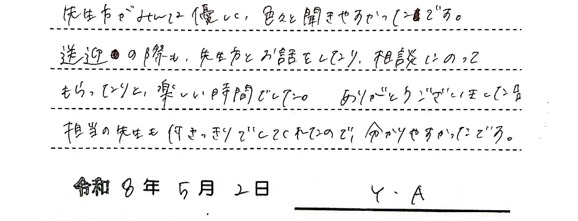 先生方がみんな優しく、色々と聞きやすかったです。
送迎の際も、先生方とお話をしたり、相談にのって
もらったりと、楽しい時間でした。 ありがとうございました。
担当の先生も付きっきりでしてくれたので、分かりやすかったです。
令和 8年 5月 2日 Y.A